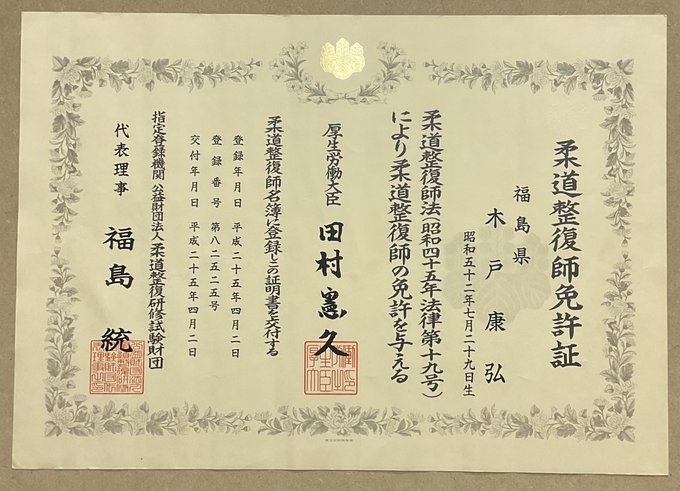 柔道整復師免許証
福島県
木戸康弘
昭和五十二年七月二十九日生
柔道整復師法（昭和四十五年法律第十九号）
により柔道整復師の免許を与える
厚生労働大臣　田村憲久
柔道整復師名簿に登録しこの証明書を交付する
登録年月日　平成二十五年四月二日
登録番号　第八二五二五号
交付年月日　平成二十五年四月二日
指定登録機関　公益財団法人　柔道整復研修試験財団
代表理事　福島統